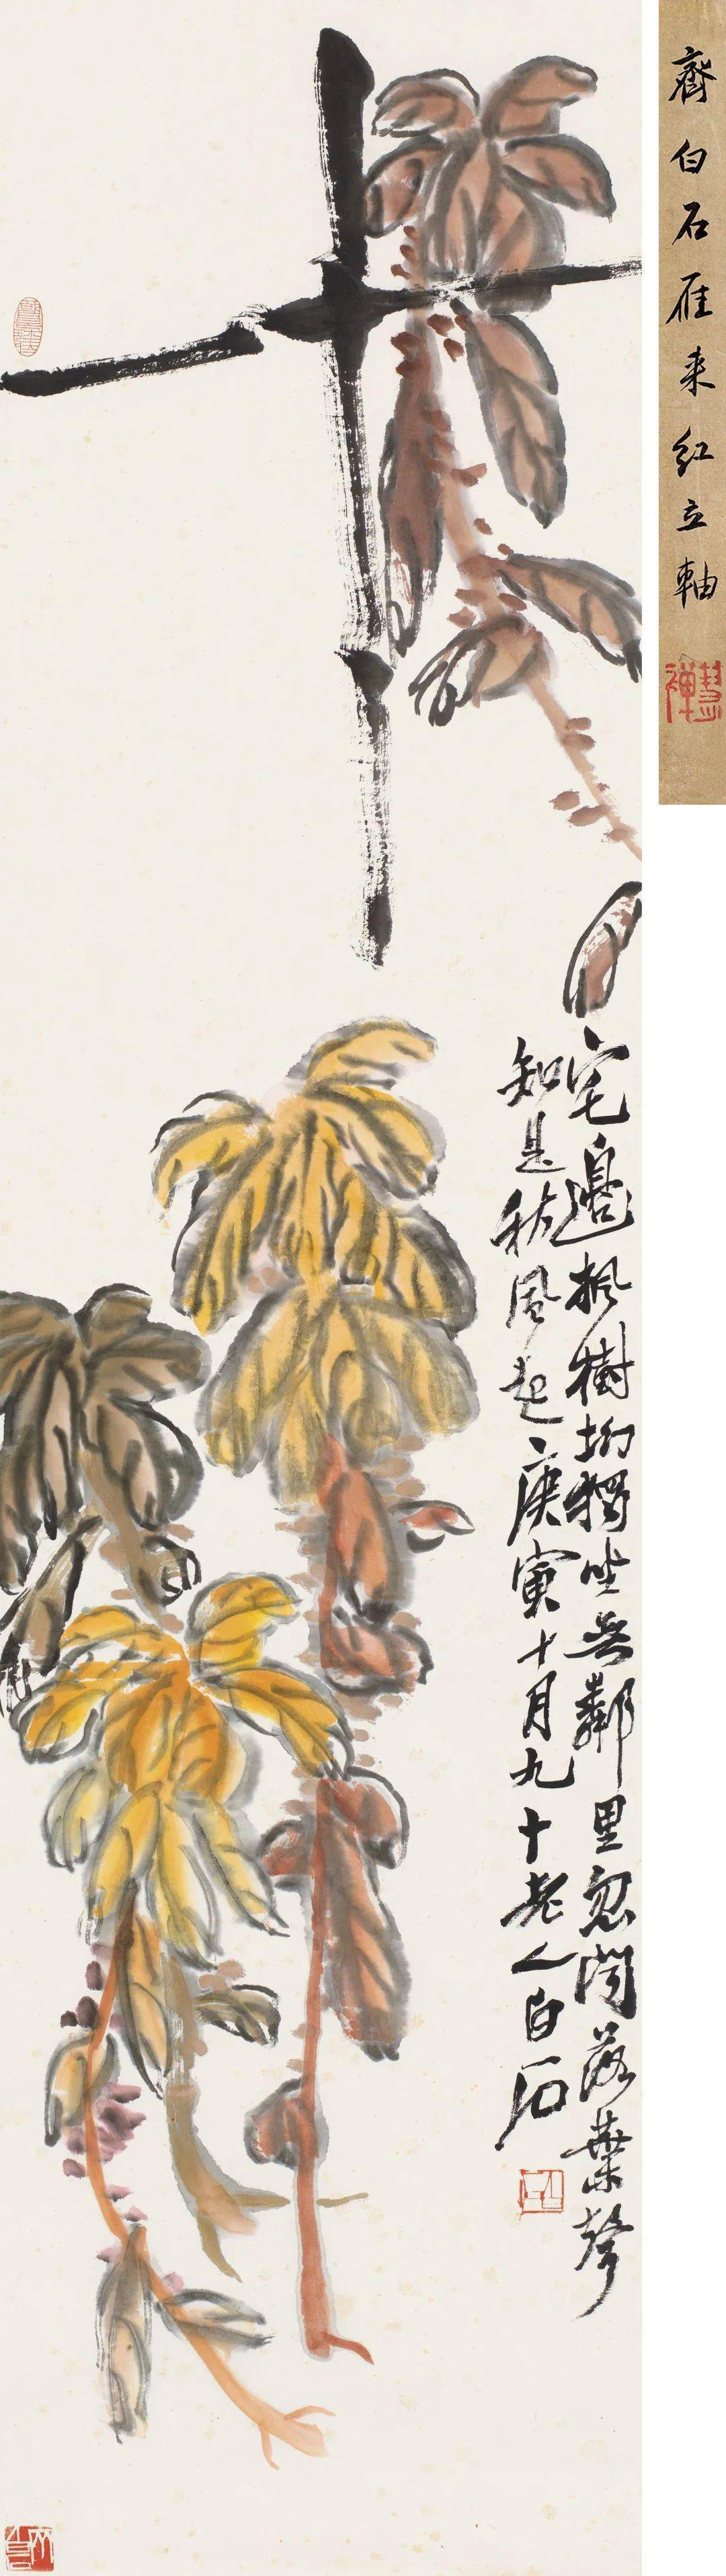 宅邊楓樹坳獨坐無鄰里忽聞落葉聲
知是秋風起庚寅十月九十老人白石
齊白石雁来紅立軸